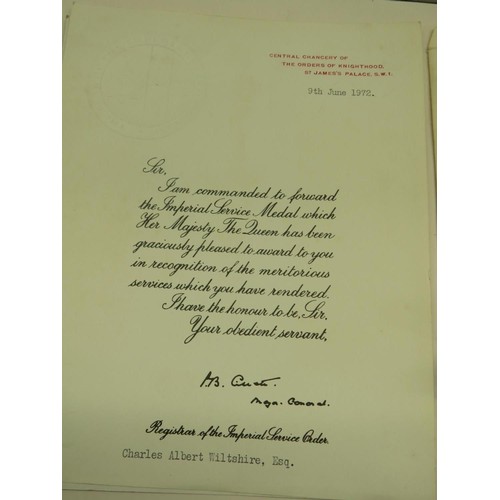 CENTRAL CHANCERY OF
THE ORDERS OF KNIGHTHOOD,
ST JAMES'S PALACE, S.W.1.
9th June 1972.
Sir,
I am commanded to forward
the Imperial Service Medal which
Her Majesty The Queen has been
graciously pleased to award to you
in recognition of the meritorious
services which you have rendered.
I have the honour to be, Sir,
Your obedient servant,
Registrar of the Imperial Service Order.
Charles Albert Wiltshire, Esq.